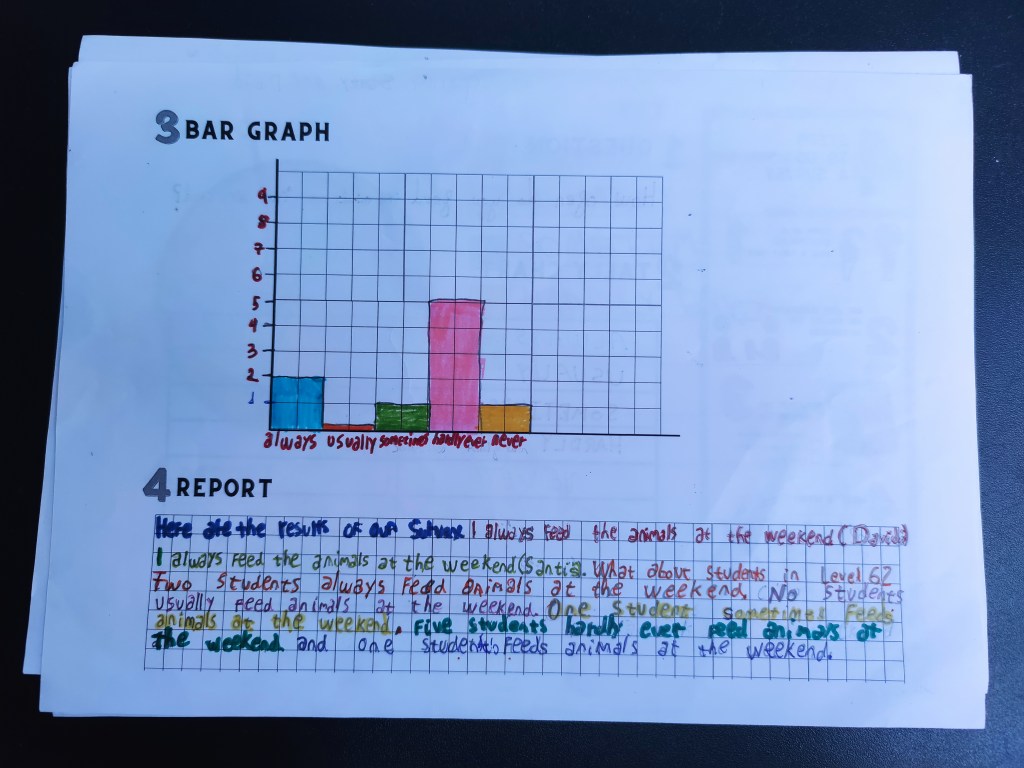 3 BAR GRAPH
9
8
7
6
5
4
3
2
1
always usually sometimes hardly ever never
4 REPORT
Here are the results of our Survey I always feed the animals at the weekend (David)
I always feed the animals at the weekend (Santia. What about students in Level 6?
Two students always feed animals at the weekend. No students
usually feed animals at the weekend. One student sometimes feeds
animals at the weekend. Five students hardly ever feed animals at
the weekend and one students feeds animals at the weekend.